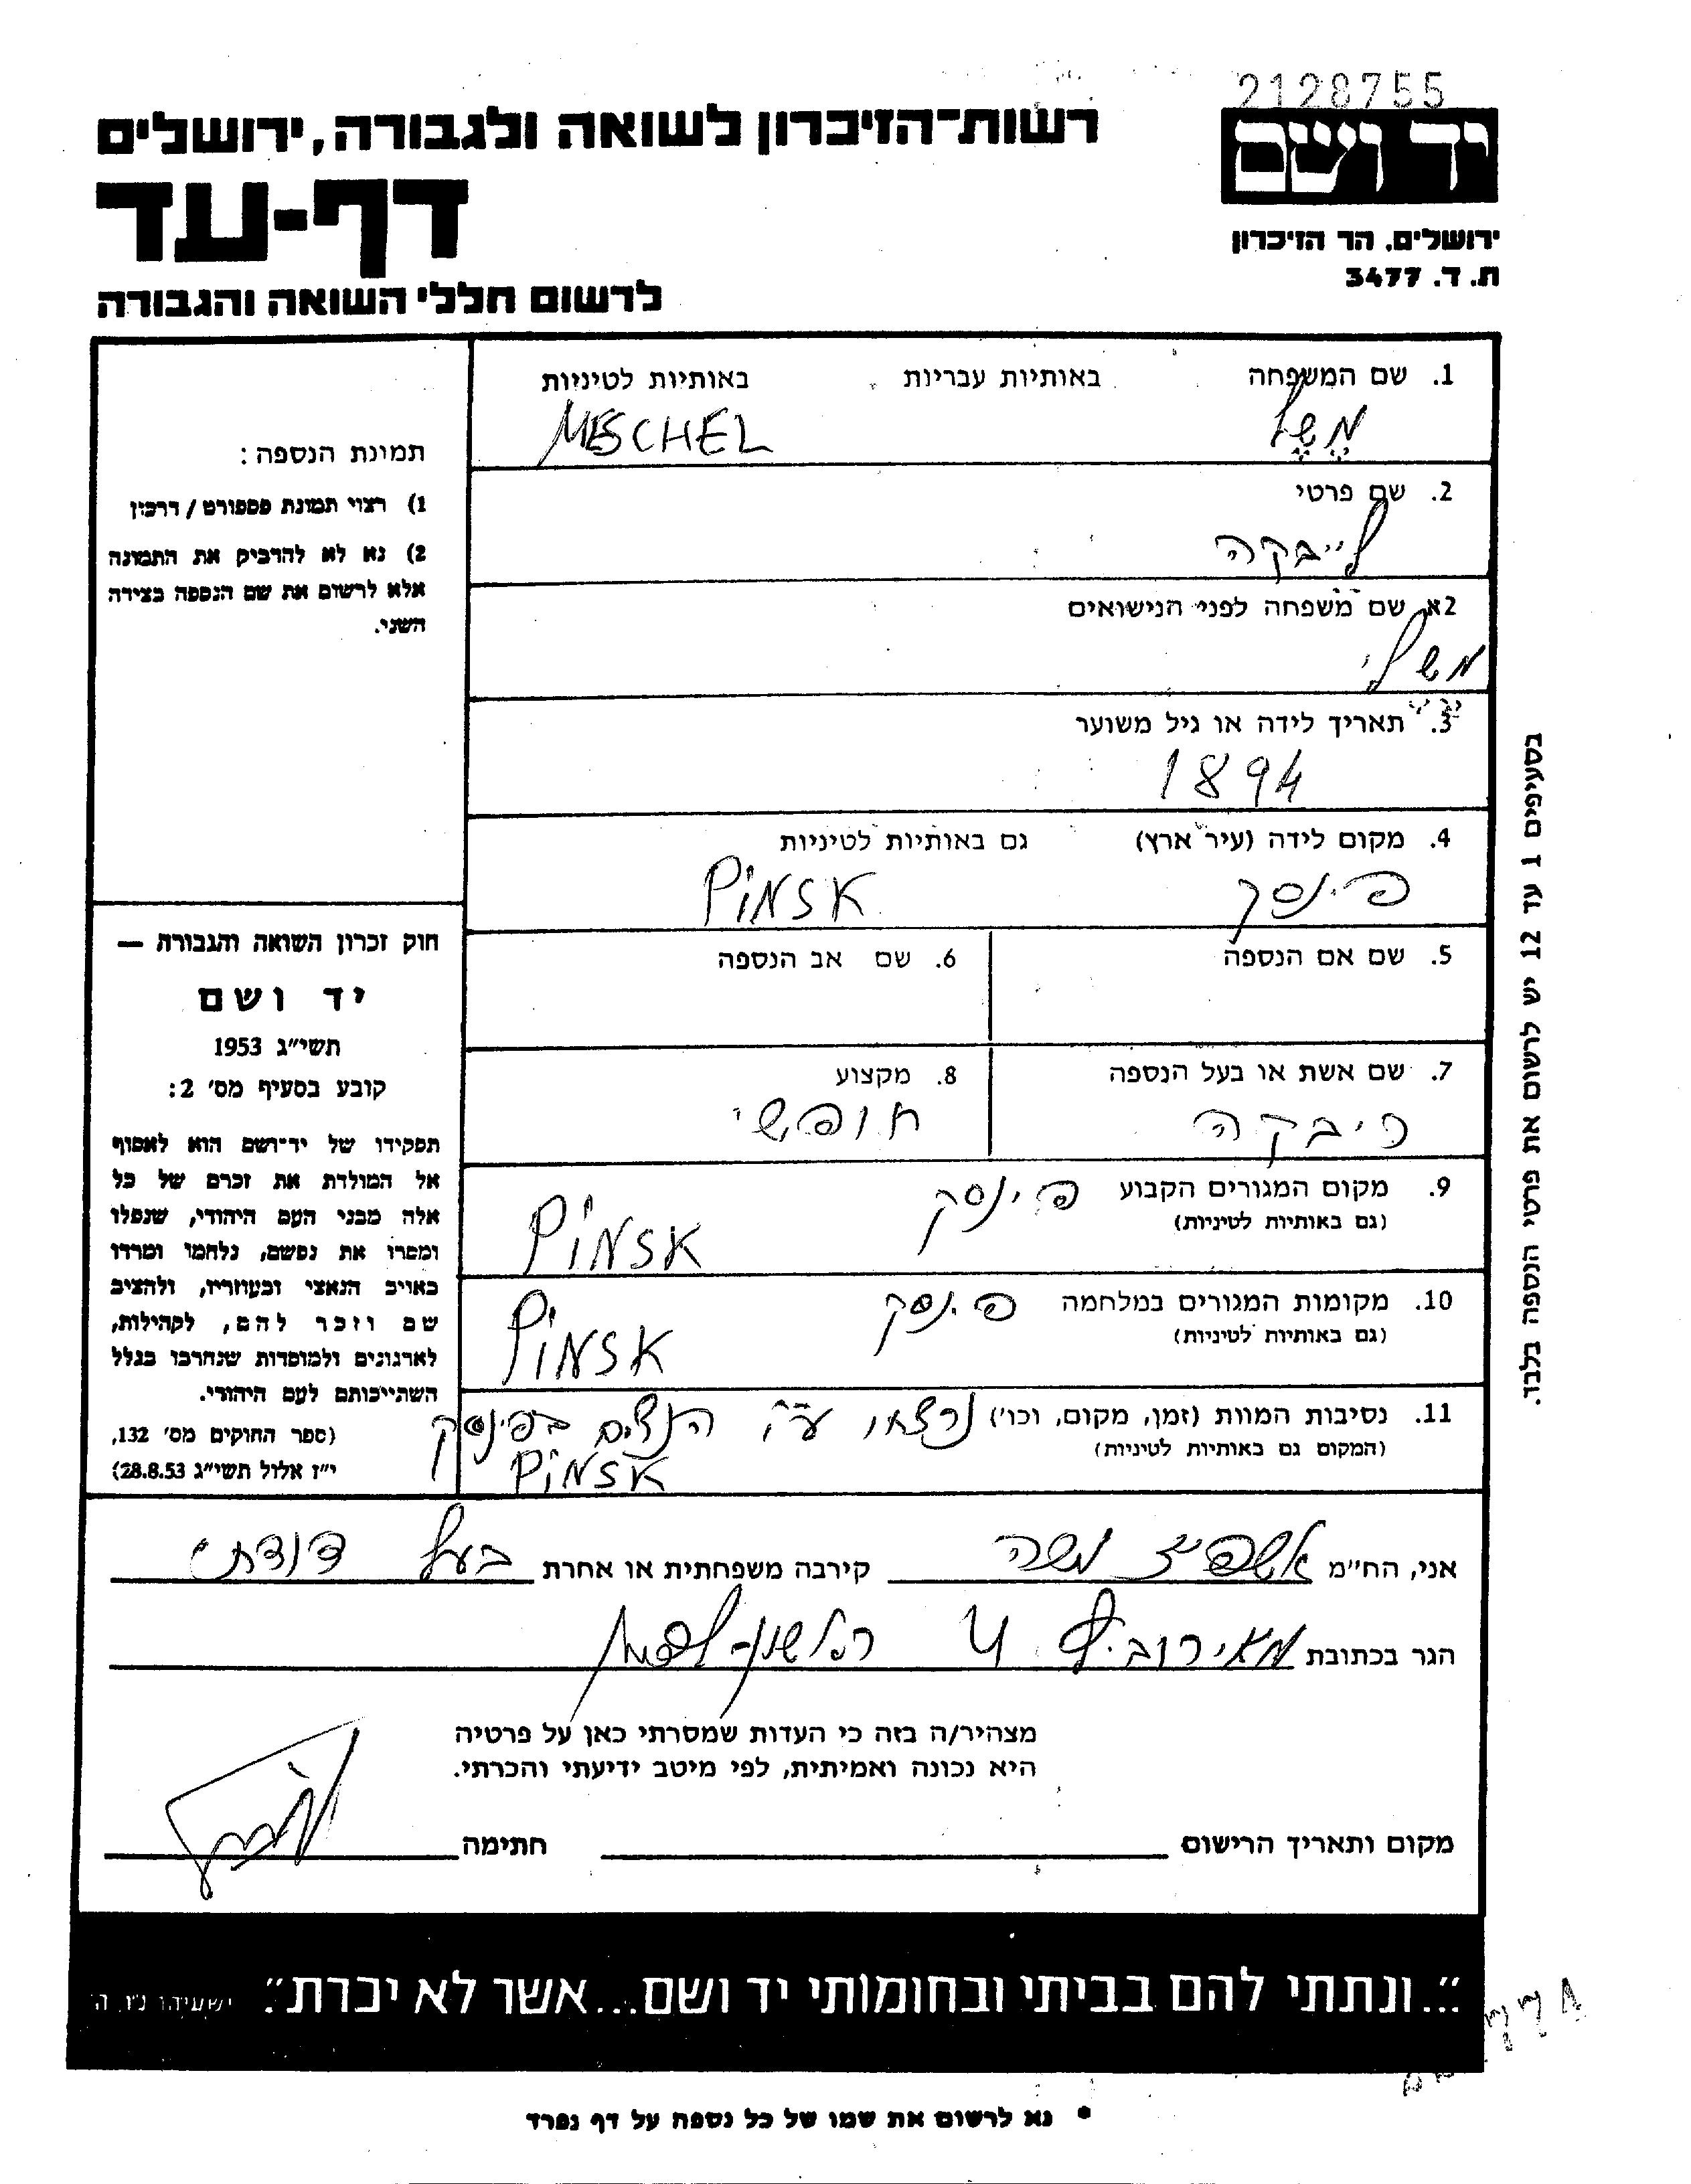 2128755
יד ושם
ירושלים, הר הזיכרון
ת. ד. 3477
רשות־הזיכרון לשואה ולגבורה, ירושלים
דף-עד
לרשום חללי השואה והגבורה
1. שם המשפחה באותיות עבריות באותיות לטיניות
מֶשֶׁל MESCHEL
2. שם פרטי
לייבקה
2א שם משפחה לפני הנישואים
משלי
3. תאריך לידה או גיל משוער
1894
4. מקום לידה (עיר ארץ) גם באותיות לטיניות
פינסק PINSK
5. שם אם הנספה 6. שם אב הנספה
7. שם אשת או בעל הנספה 8. מקצוע
ריבקה חופשי
9. מקום המגורים הקבוע פינסק
(גם באותיות לטיניות) PINSK
10. מקומות המגורים במלחמה פינסק
(גם באותיות לטיניות) PINSK
11. נסיבות המוות (זמן, מקום, וכו') נרצחו ע"י הנאצים בפינסק
(המקום גם באותיות לטיניות) PINSK
תמונת הנספה:
1) רצוי תמונת פספורט / דרכון
2) נא לא להדביק את התמונה
אלא לרשום את שם הנספה בצידה
השני.
חוק זכרון השואה והגבורה —
יד ושם
תשי"ג 1953
קובע בסעיף מס' 2:
תפקידו של יד־ושם הוא לאסוף
אל המולדת את זכרם של כל
אלה מבני העם היהודי, שנפלו
ומסרו את נפשם, נלחמו ומרדו
באויב הנאצי ובעוזריו, ולהציב
שם וזכר להם, לקהילות,
לארגונים ולמוסדות שנחרבו בגלל
השתייכותם לעם היהודי.
(ספר החוקים מס' 132,
י"ז אלול תשי"ג 28.8.53)
בסעיפים 1 עד 12 יש לרשום את פרטי הנספה בלבד.
אני, הח"מ משה קירבה משפחתית או אחרת בעל דודתי
הגר בכתובת מאירוביץ 4 ראשון-לציון
מצהיר/ה בזה כי העדות שמסרתי כאן על פרטיה
היא נכונה ואמיתית, לפי מיטב ידיעתי והכרתי.
מקום ותאריך הרישום חתימה
"...ונתתי להם בביתי ובחומותי יד ושם...אשר לא יכרת". ישעיהו נ"ו, ה'
* נא לרשום את שמו של כל נספה על דף נפרד